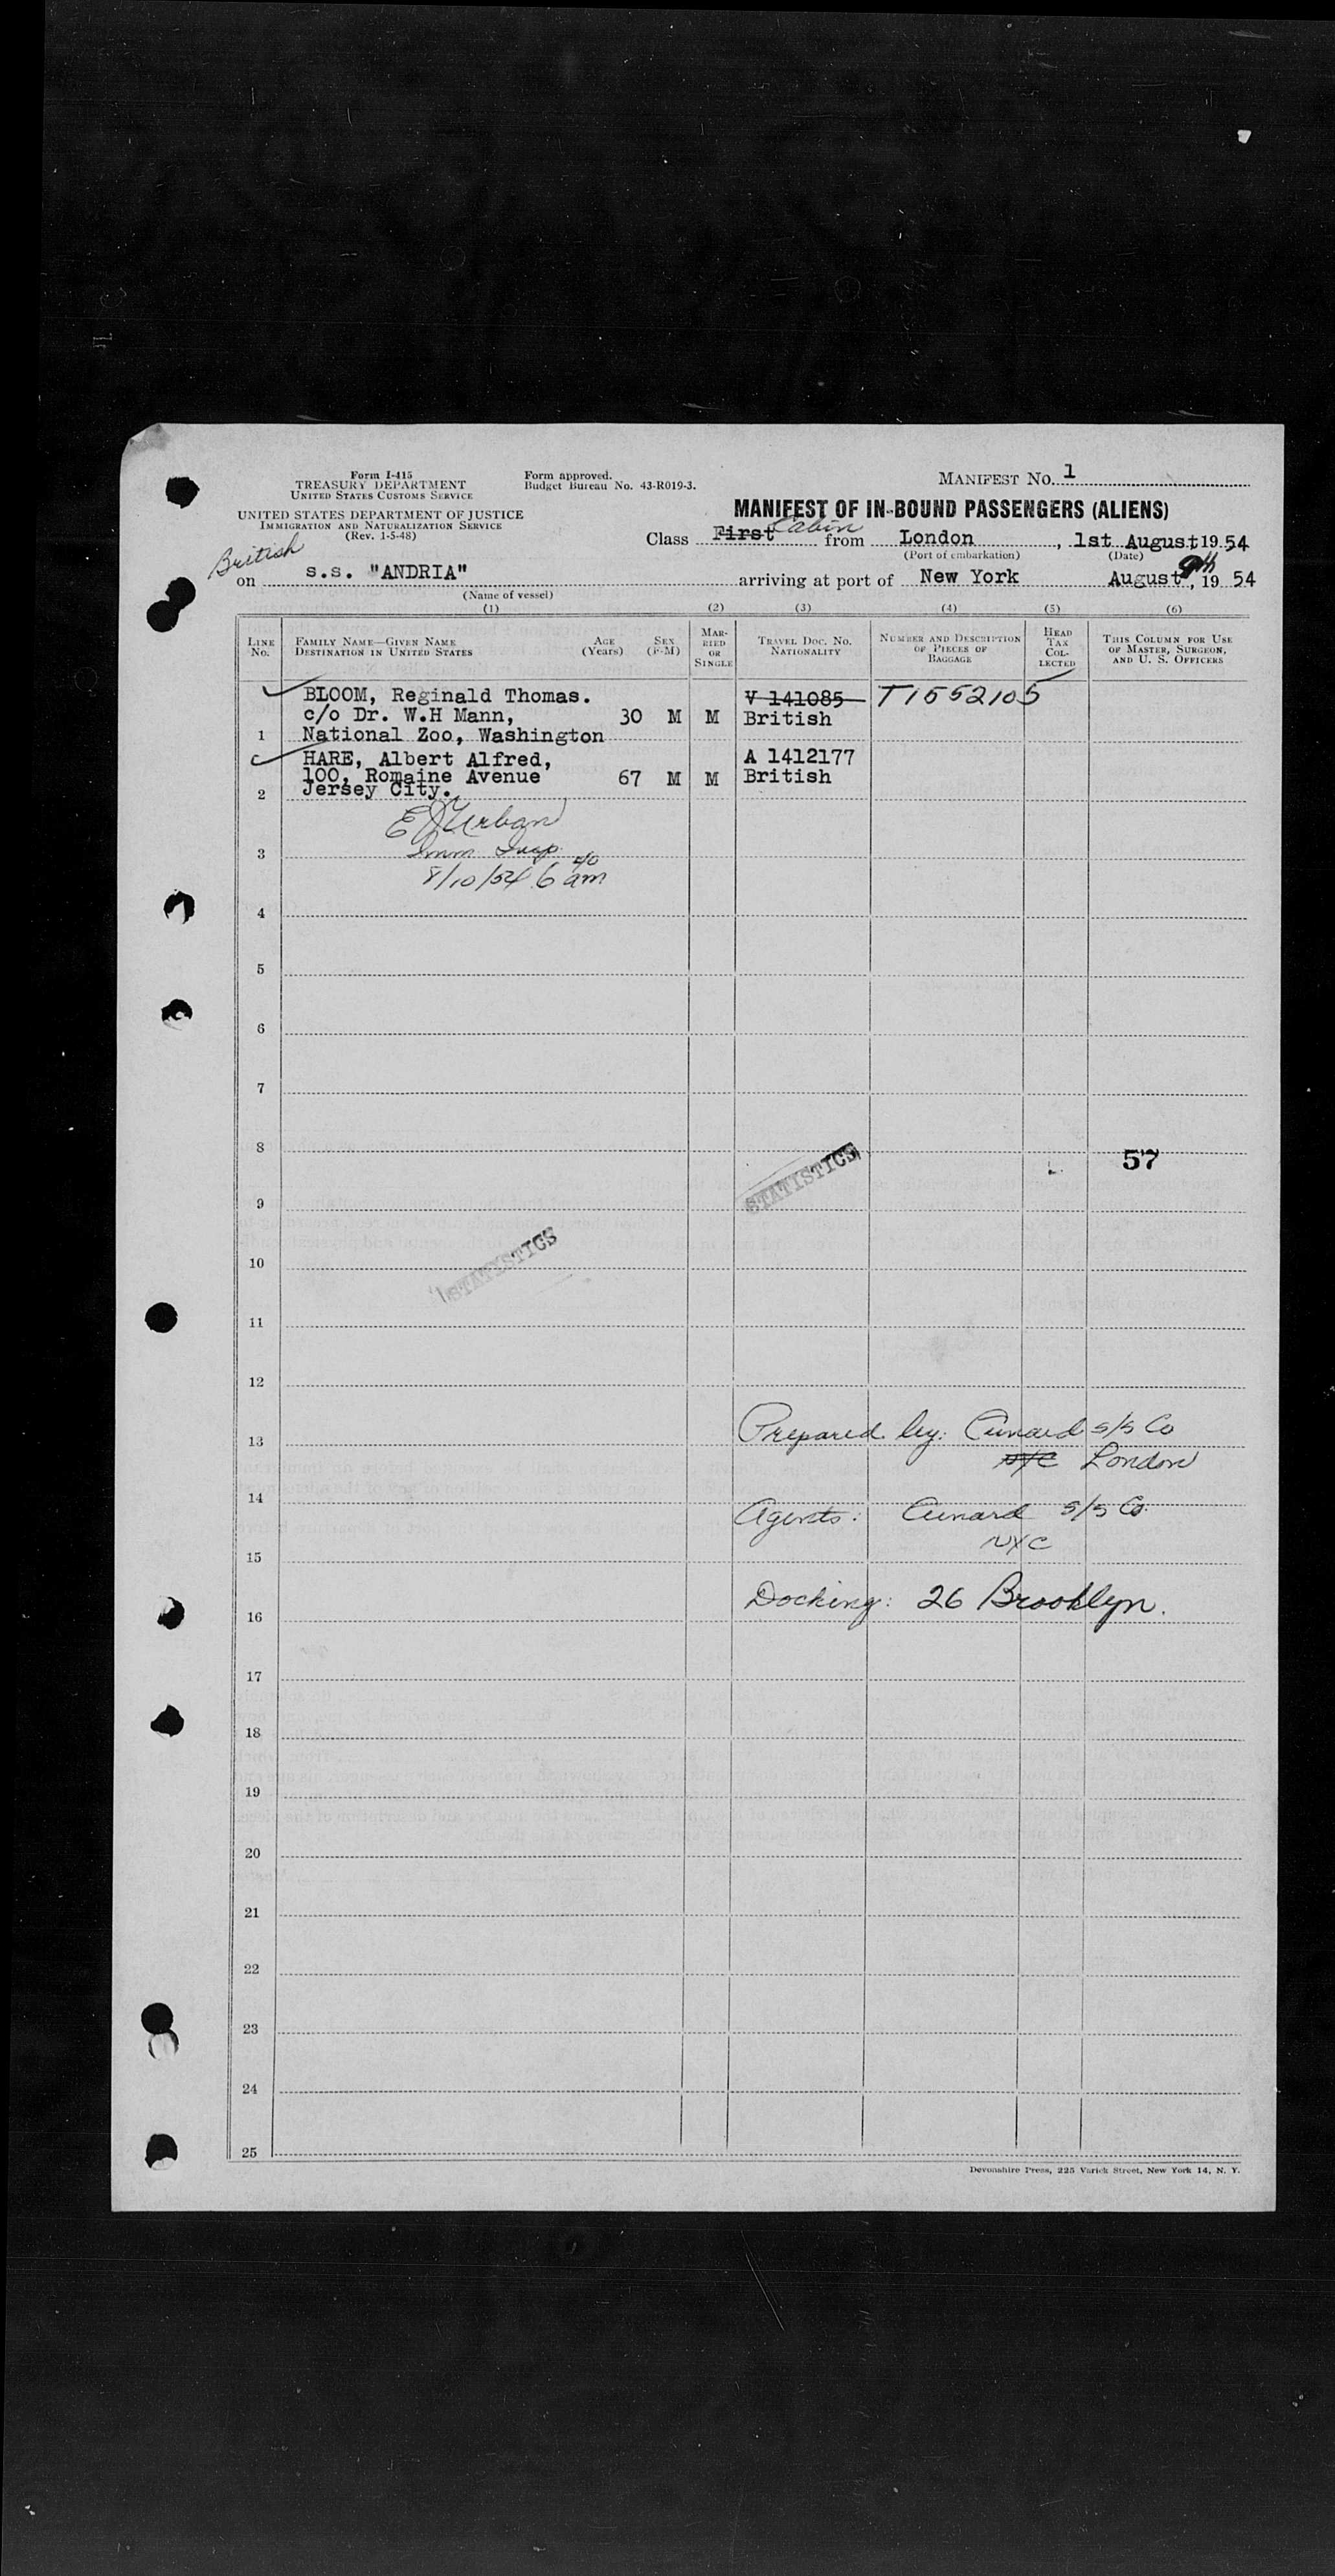 Form I-415
TREASURY DEPARTMENT
UNITED STATES CUSTOMS SERVICE
UNITED STATES DEPARTMENT OF JUSTICE
IMMIGRATION AND NATURALIZATION SERVICE
(Rev. 1-5-48)
Form approved.
Budget Bureau No. 43-R019-3.
MANIFEST NO. 1
MANIFEST OF IN-BOUND PASSENGERS (ALIENS)
Cabin
Class First from London, 1st August 1954
(Port of embarkation) (Date)
British
on s.s. "ANDRIA" arriving at port of New York August 9th, 1954
(Name of vessel)
(1) (2) (3) (4) (5) (6)
LINE No. FAMILY NAME—GIVEN NAME DESTINATION IN UNITED STATES AGE (Years) SEX (F-M) MARRIED OR SINGLE TRAVEL DOC. NO. NATIONALITY NUMBER AND DESCRIPTION OF PIECES OF BAGGAGE HEAD TAX COLLECTED THIS COLUMN FOR USE OF MASTER, SURGEON, AND U. S. OFFICERS
BLOOM, Reginald Thomas. V 141085 T1552105
c/o Dr. W.H Mann, 30 M M British
1 National Zoo, Washington
HARE, Albert Alfred, A 1412177
100, Romaine Avenue 67 M M British
2 Jersey City.
E J Urban
3 Imm Insp.
8/10/54 6 40 am
4
5
6
7
8 57
STATISTICS
9
10 STATISTICS
11
12
13 Prepared by: Cunard S/S Co
NYC London
14
Agents: Cunard S/S Co.
NYC
15
16 Docking: 26 Brooklyn.
17
18
19
20
21
22
23
24
25
Devonshire Press, 225 Varick Street, New York 14, N. Y.